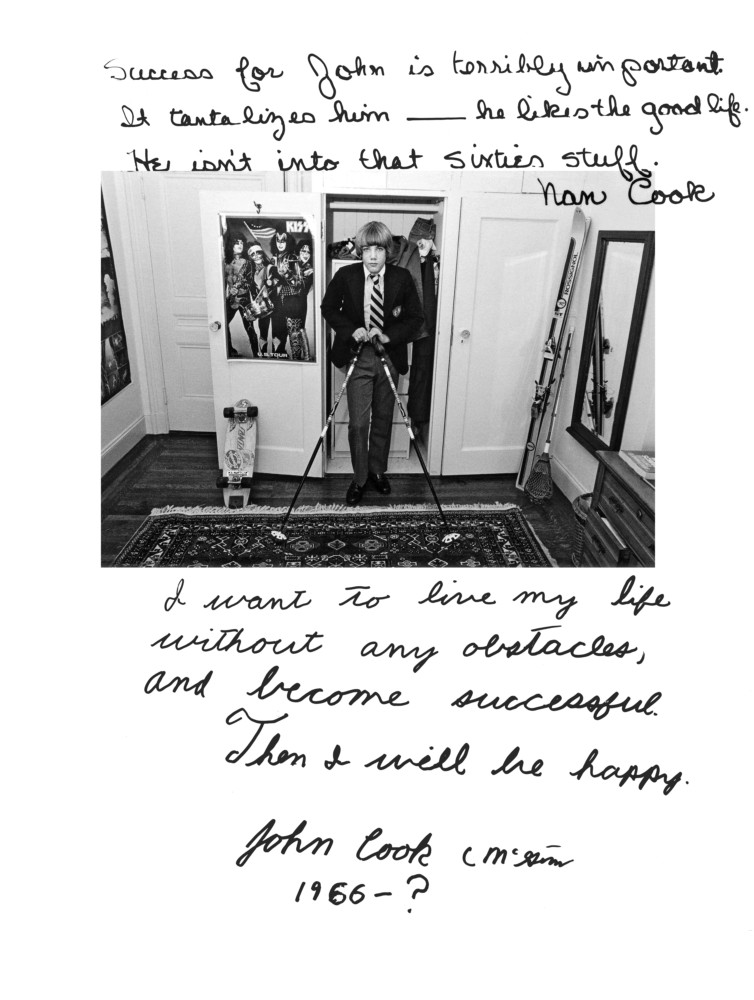 Success for John is terribly important.
It tantalizes him — he likes the good life.
He isn't into that sixties stuff.
Nan Cook
KISS
U.S. TOUR
ROSSIGNOL
I want to live my life
without any obstacles,
and become successful.
Then I will be happy.
John Cook
1966 – ?